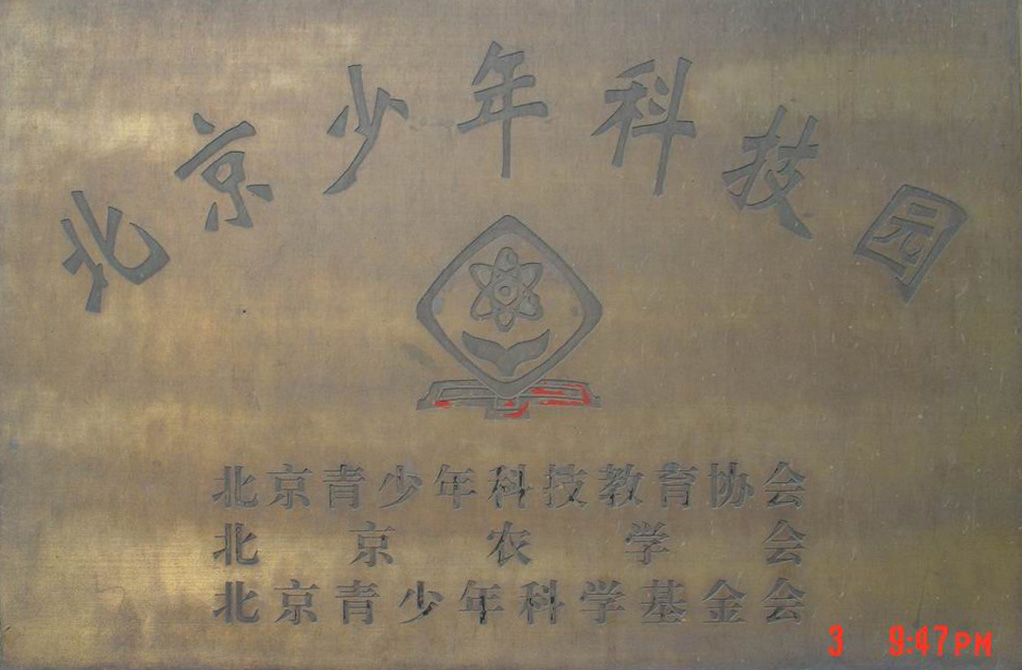 北京少年科技园
北京青少年科技教育协会
北京农学会
北京青少年科学基金会
3 9:47PM